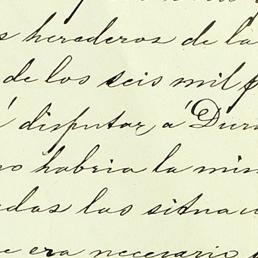 s herederos de la
de los seis mil p
á disputar, á Dur
no habria la min
adas las situa
e era necesario